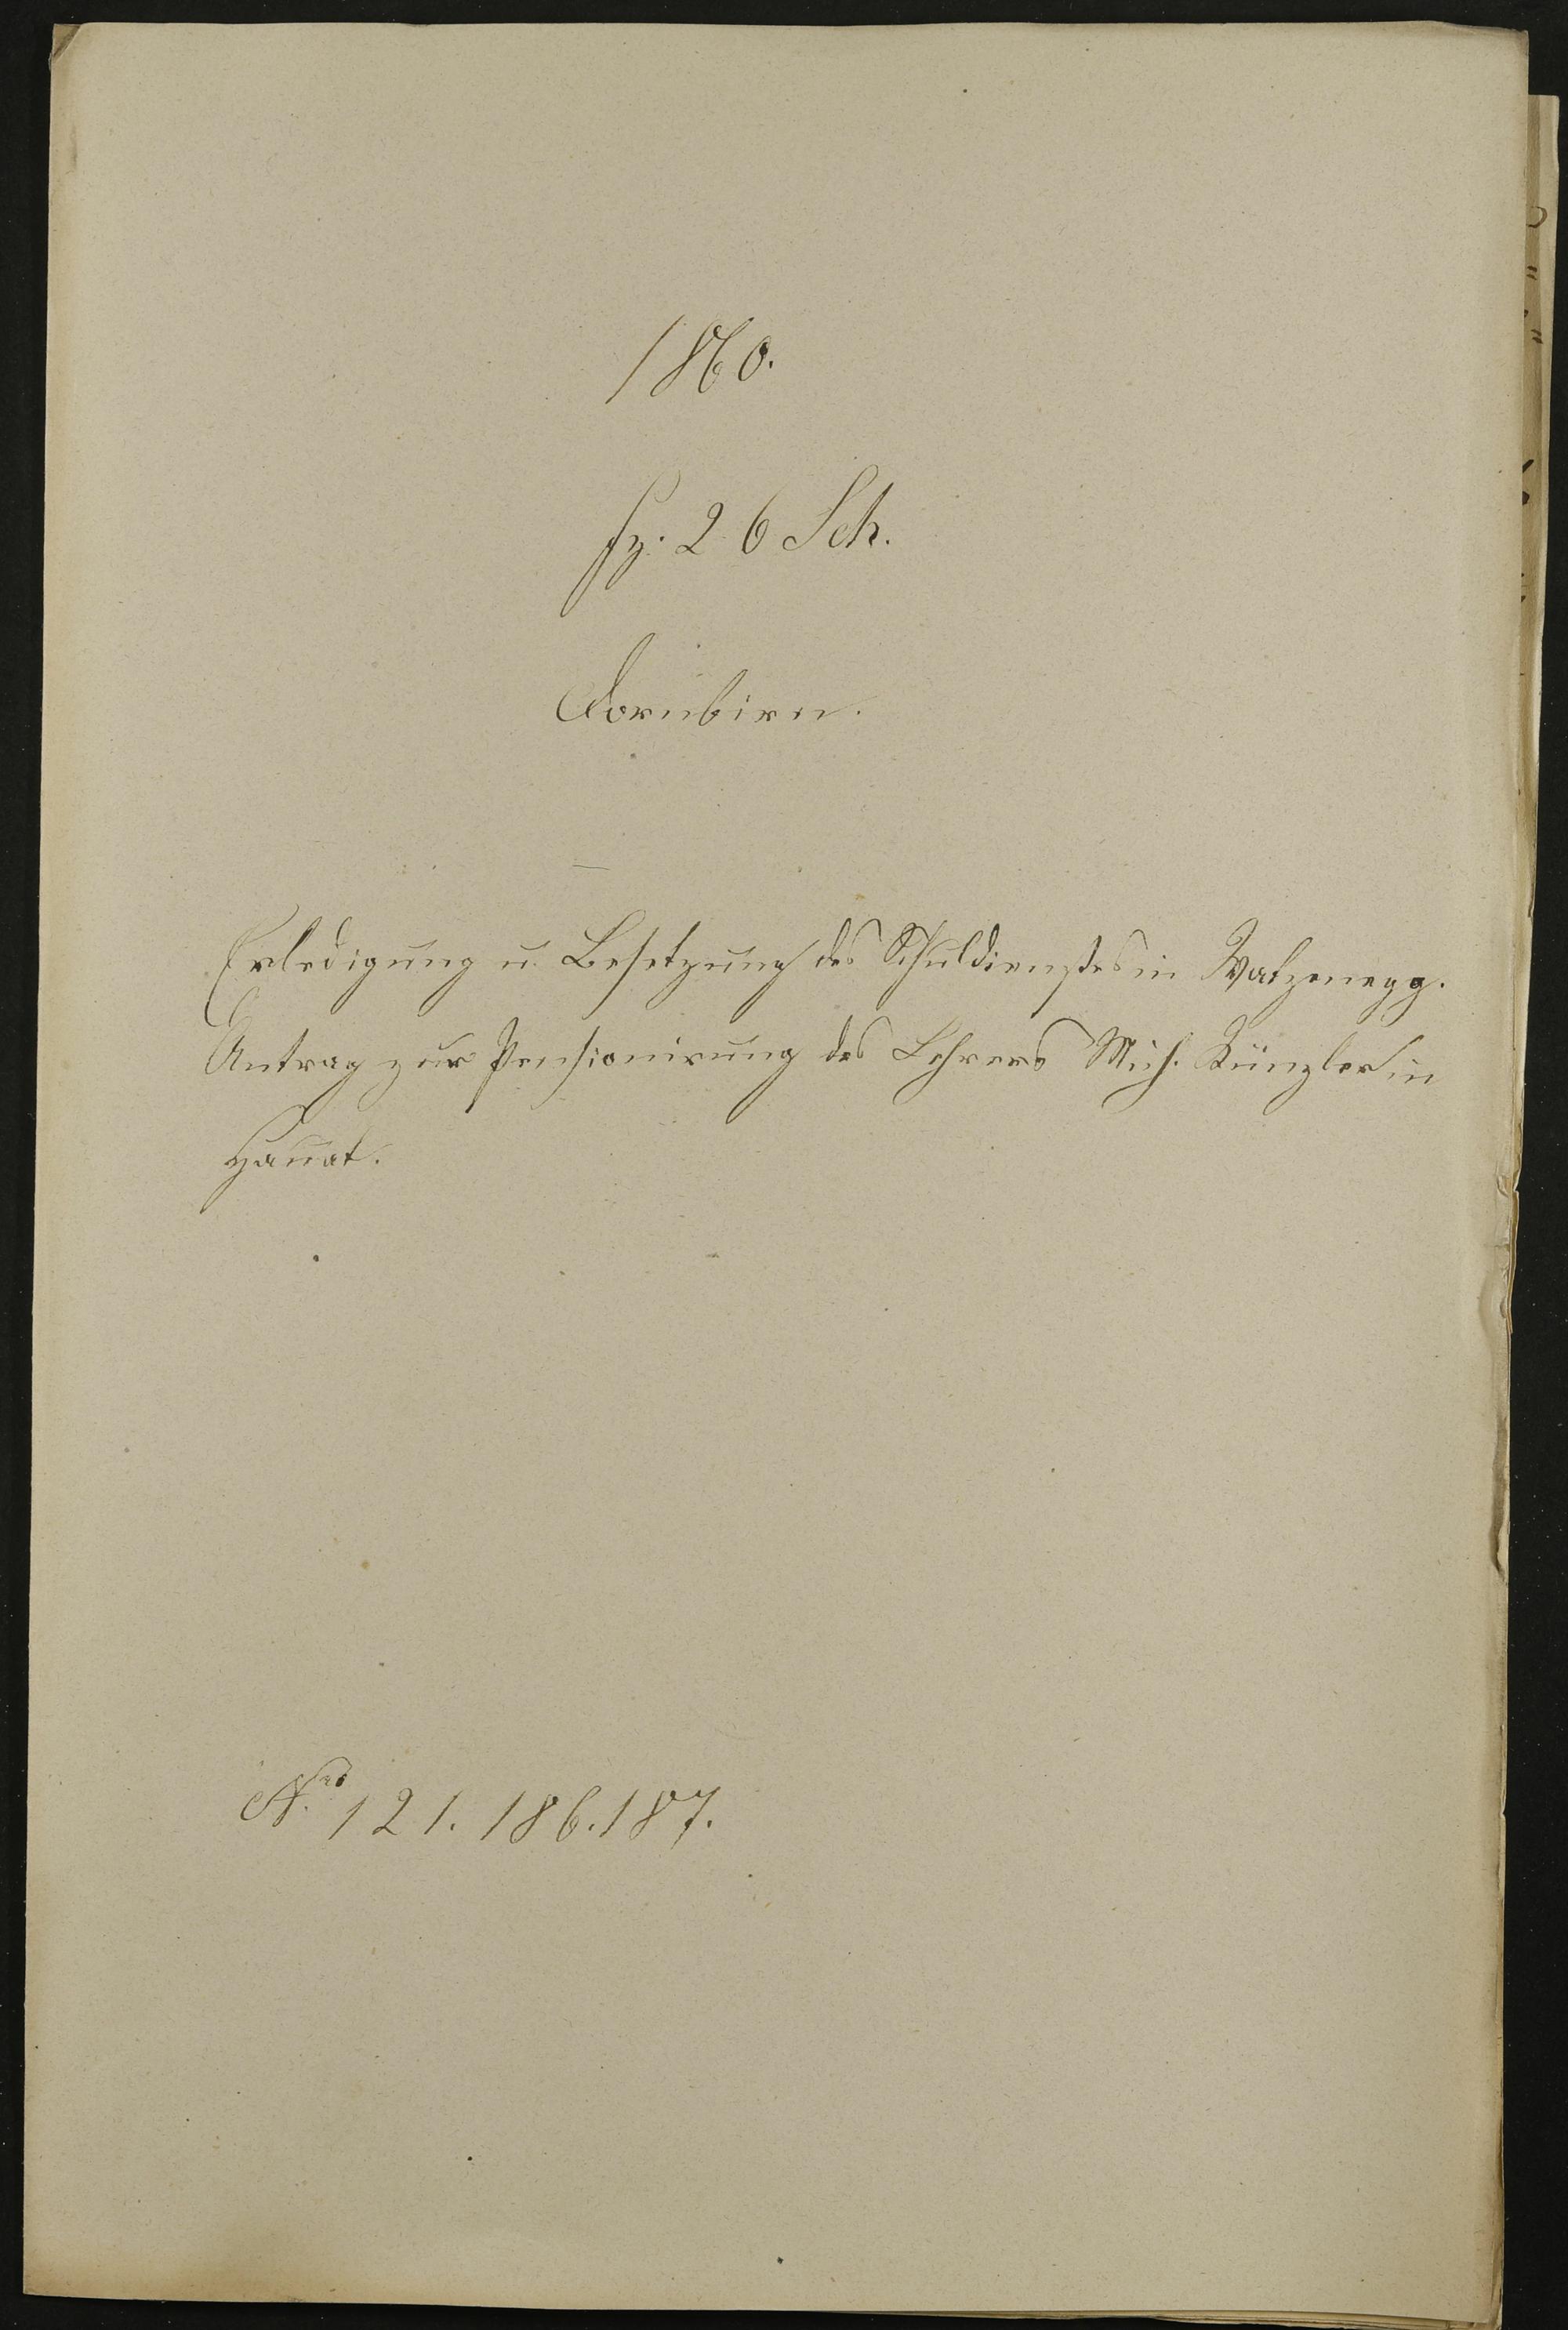 1860.
fz. 26 Sch.
Dornbirn.
Erledigung u. Besetzung des Schuldienstes in Watzenegg.
Antrag zur Pensionirung des Lehrers Mich. Künzler in
Hauat.
Nres 121. 186. 187.